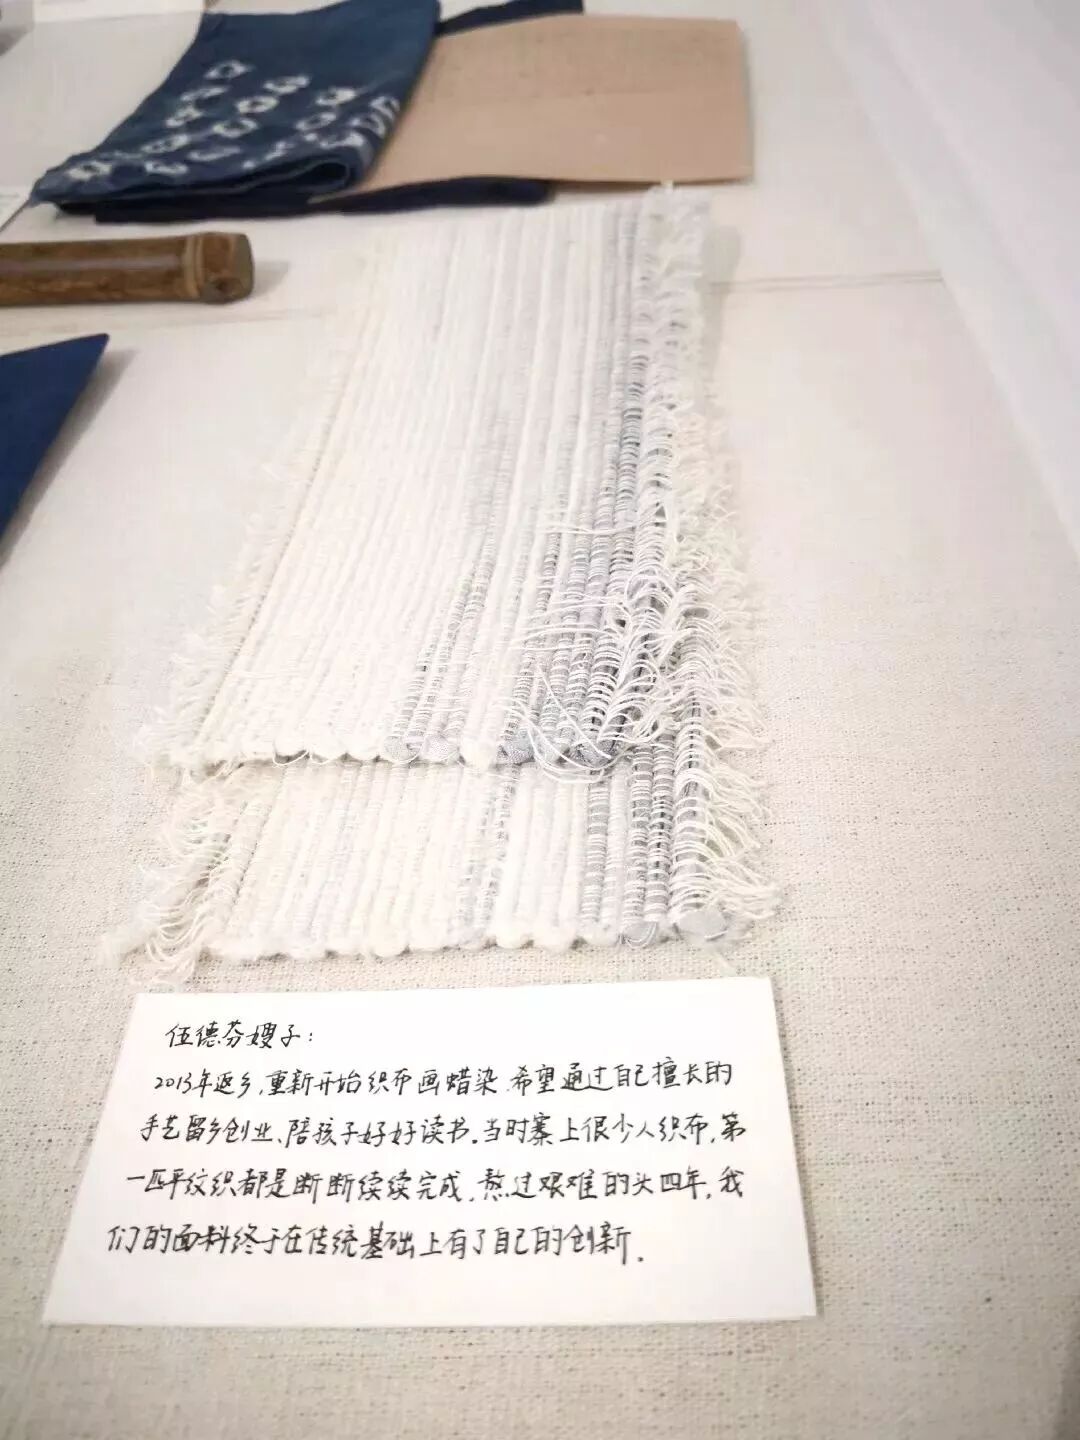 伍德芬嫂子：
2013年返乡，重新开始织布画蜡染，希望通过自己擅长的
手艺留乡创业、陪孩子好好读书。当时寨上很少人织布，第
一匹平纹织都是断断续续完成，熬过艰难的头四年，我
们的面料终于在传统基础上有了自己的创新．